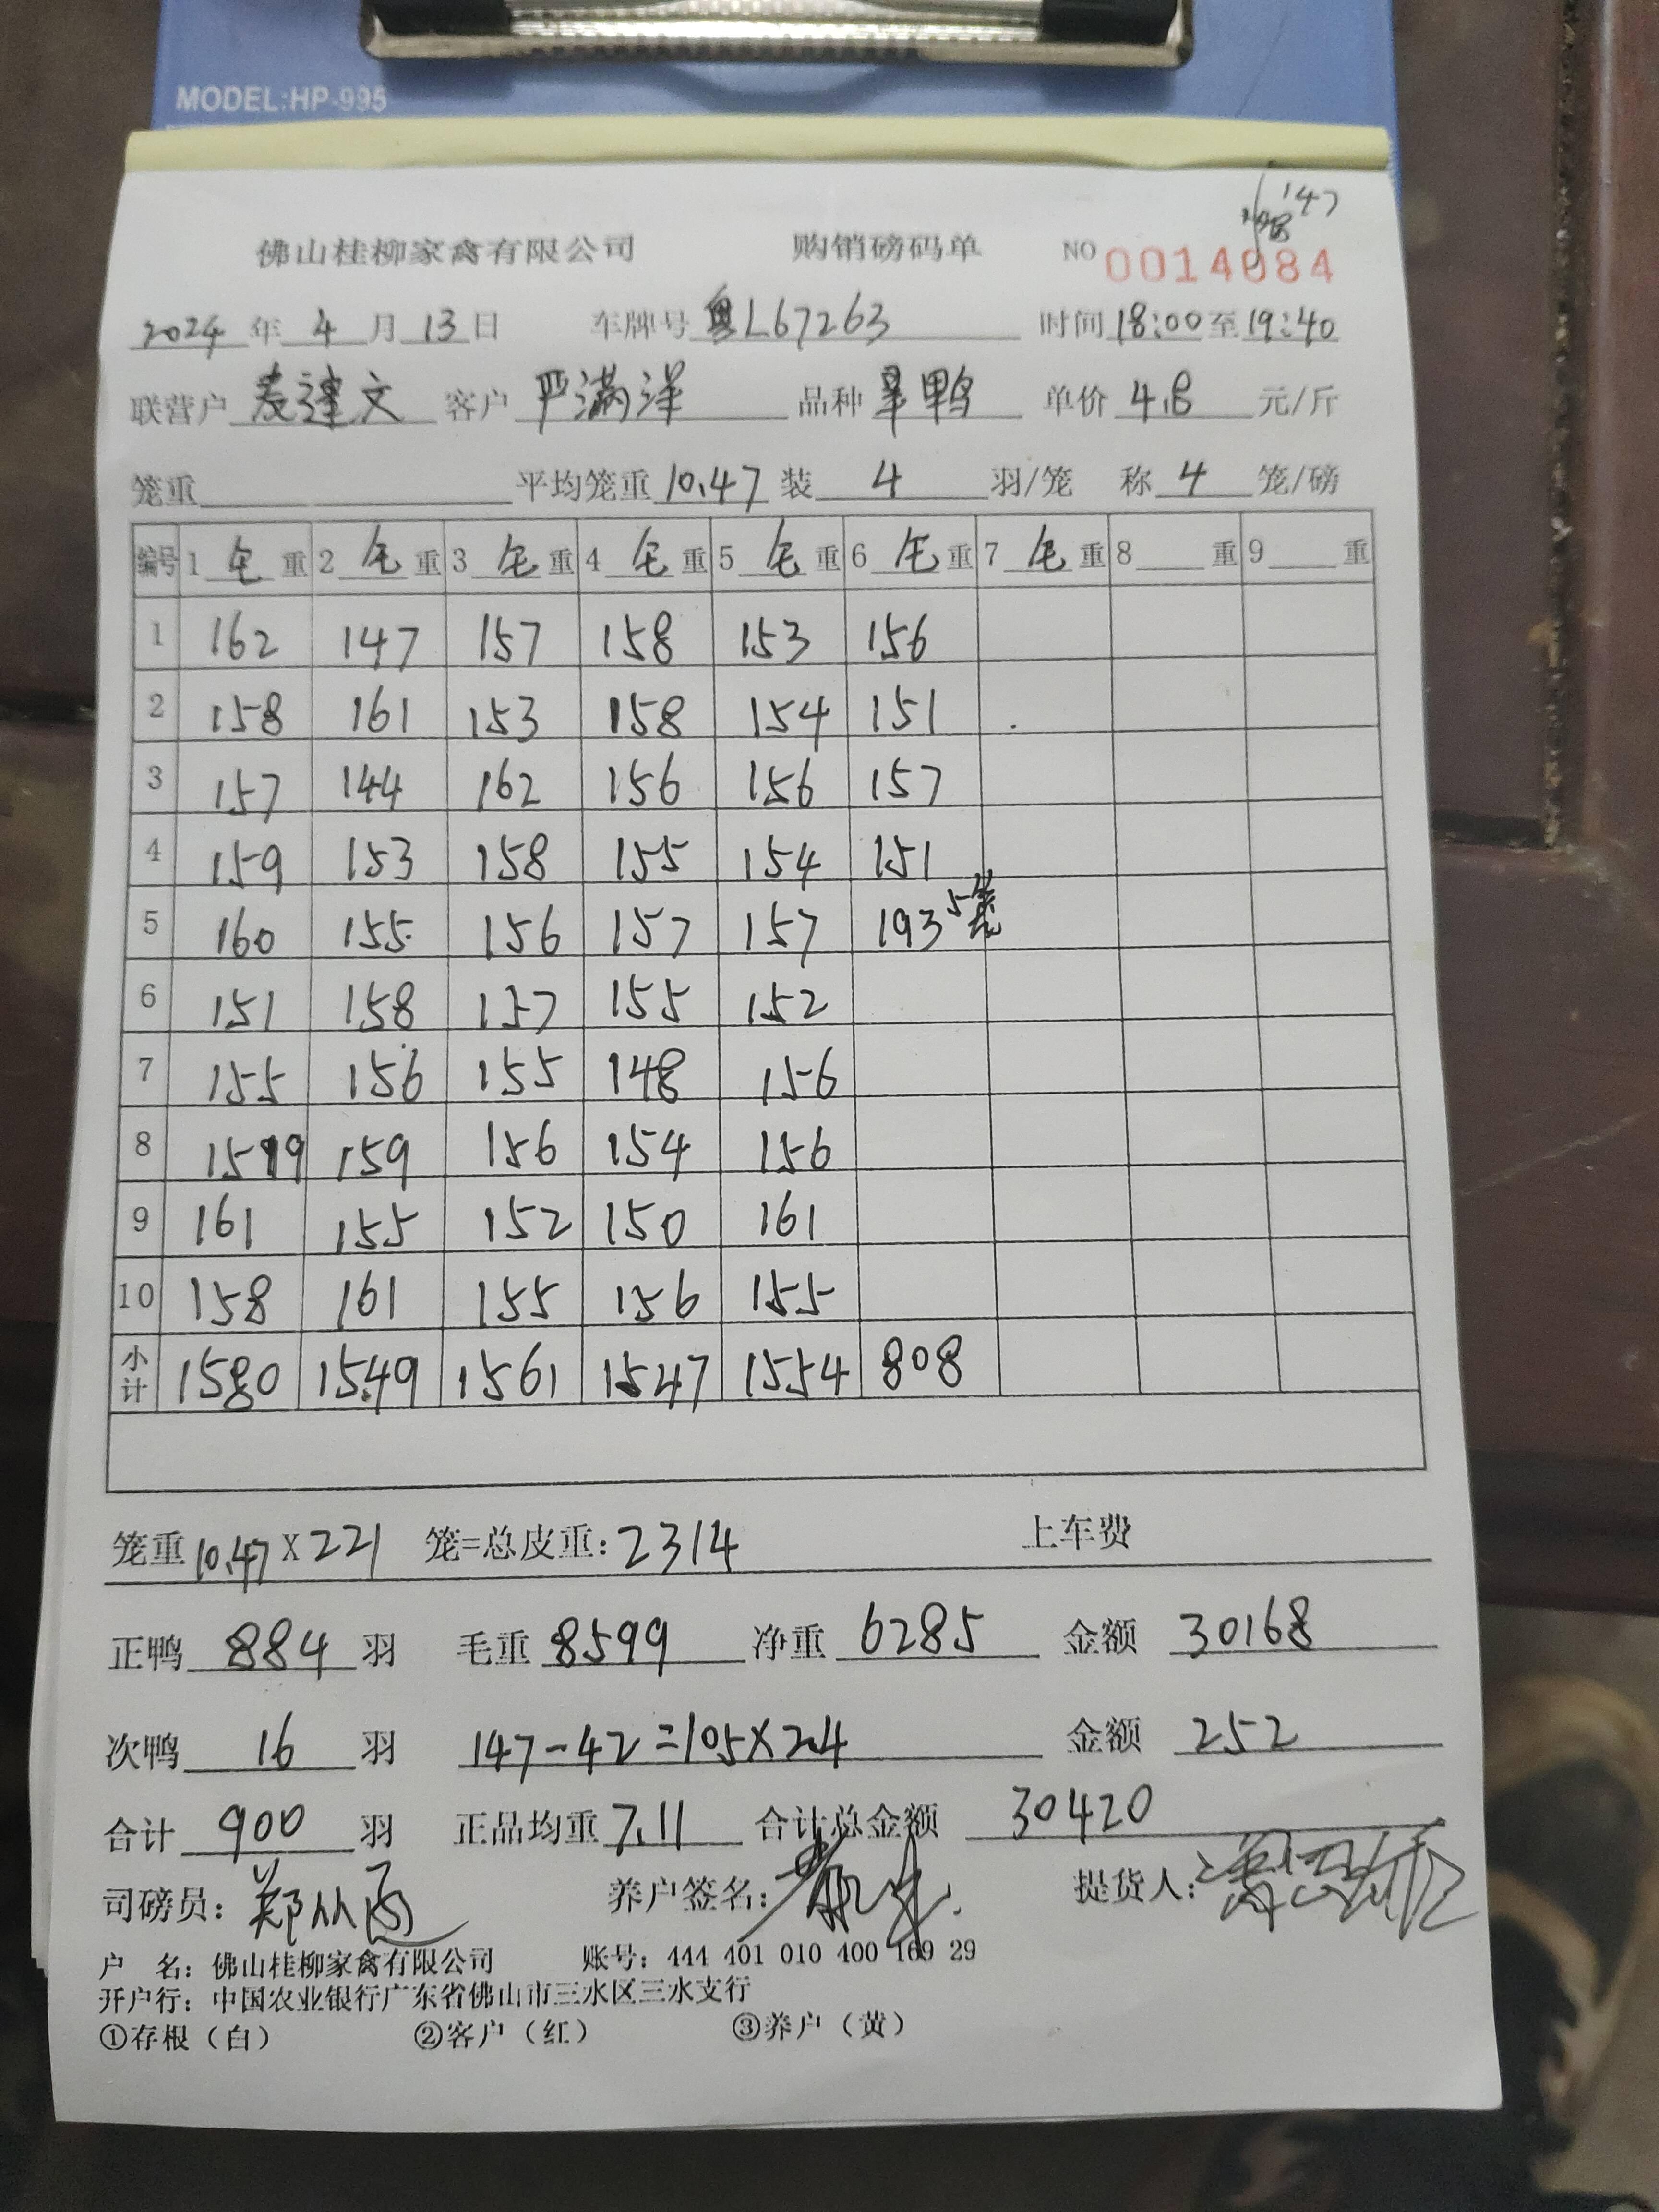 MODEL:HP-995
147
佛山桂柳家禽有限公司 购销磅码单 NO 0014084
2024 年 4 月 13 日 车牌号 粤L67263 时间 18:00 至 19:40
联营户 麦建文 客户 严满洋 品种 旱鸭 单价 4.8 元/斤
笼重 平均笼重 10.47 装 4 羽/笼 称 4 笼/磅
编号 1 毛 重 2 毛 重 3 毛 重 4 毛 重 5 毛 重 6 毛 重 7 毛 重 8 重 9 重
1 162 147 157 158 153 156
2 158 161 153 158 154 151
3 157 144 162 156 156 157
4 159 153 158 155 154 151
5 160 155 156 157 157 193 5笼
6 151 158 157 155 152
7 155 156 155 148 156
8 159 159 156 154 156
9 161 155 152 150 161
10 158 161 155 156 155
小计 1580 1549 1561 1547 1554 808
笼重 10.47 X 221 笼=总皮重: 2314 上车费
正鸭 884 羽 毛重 8599 净重 6285 金额 30168
次鸭 16 羽 147-42=105X2.4 金额 252
合计 900 羽 正品均重 7.11 合计总金额 30420
司磅员: 郑从雨 养户签名: 提货人:
户 名: 佛山桂柳家禽有限公司 账号: 444 401 010 400 169 29
开户行: 中国农业银行广东省佛山市三水区三水支行
①存根（白） ②客户（红） ③养户（黄）